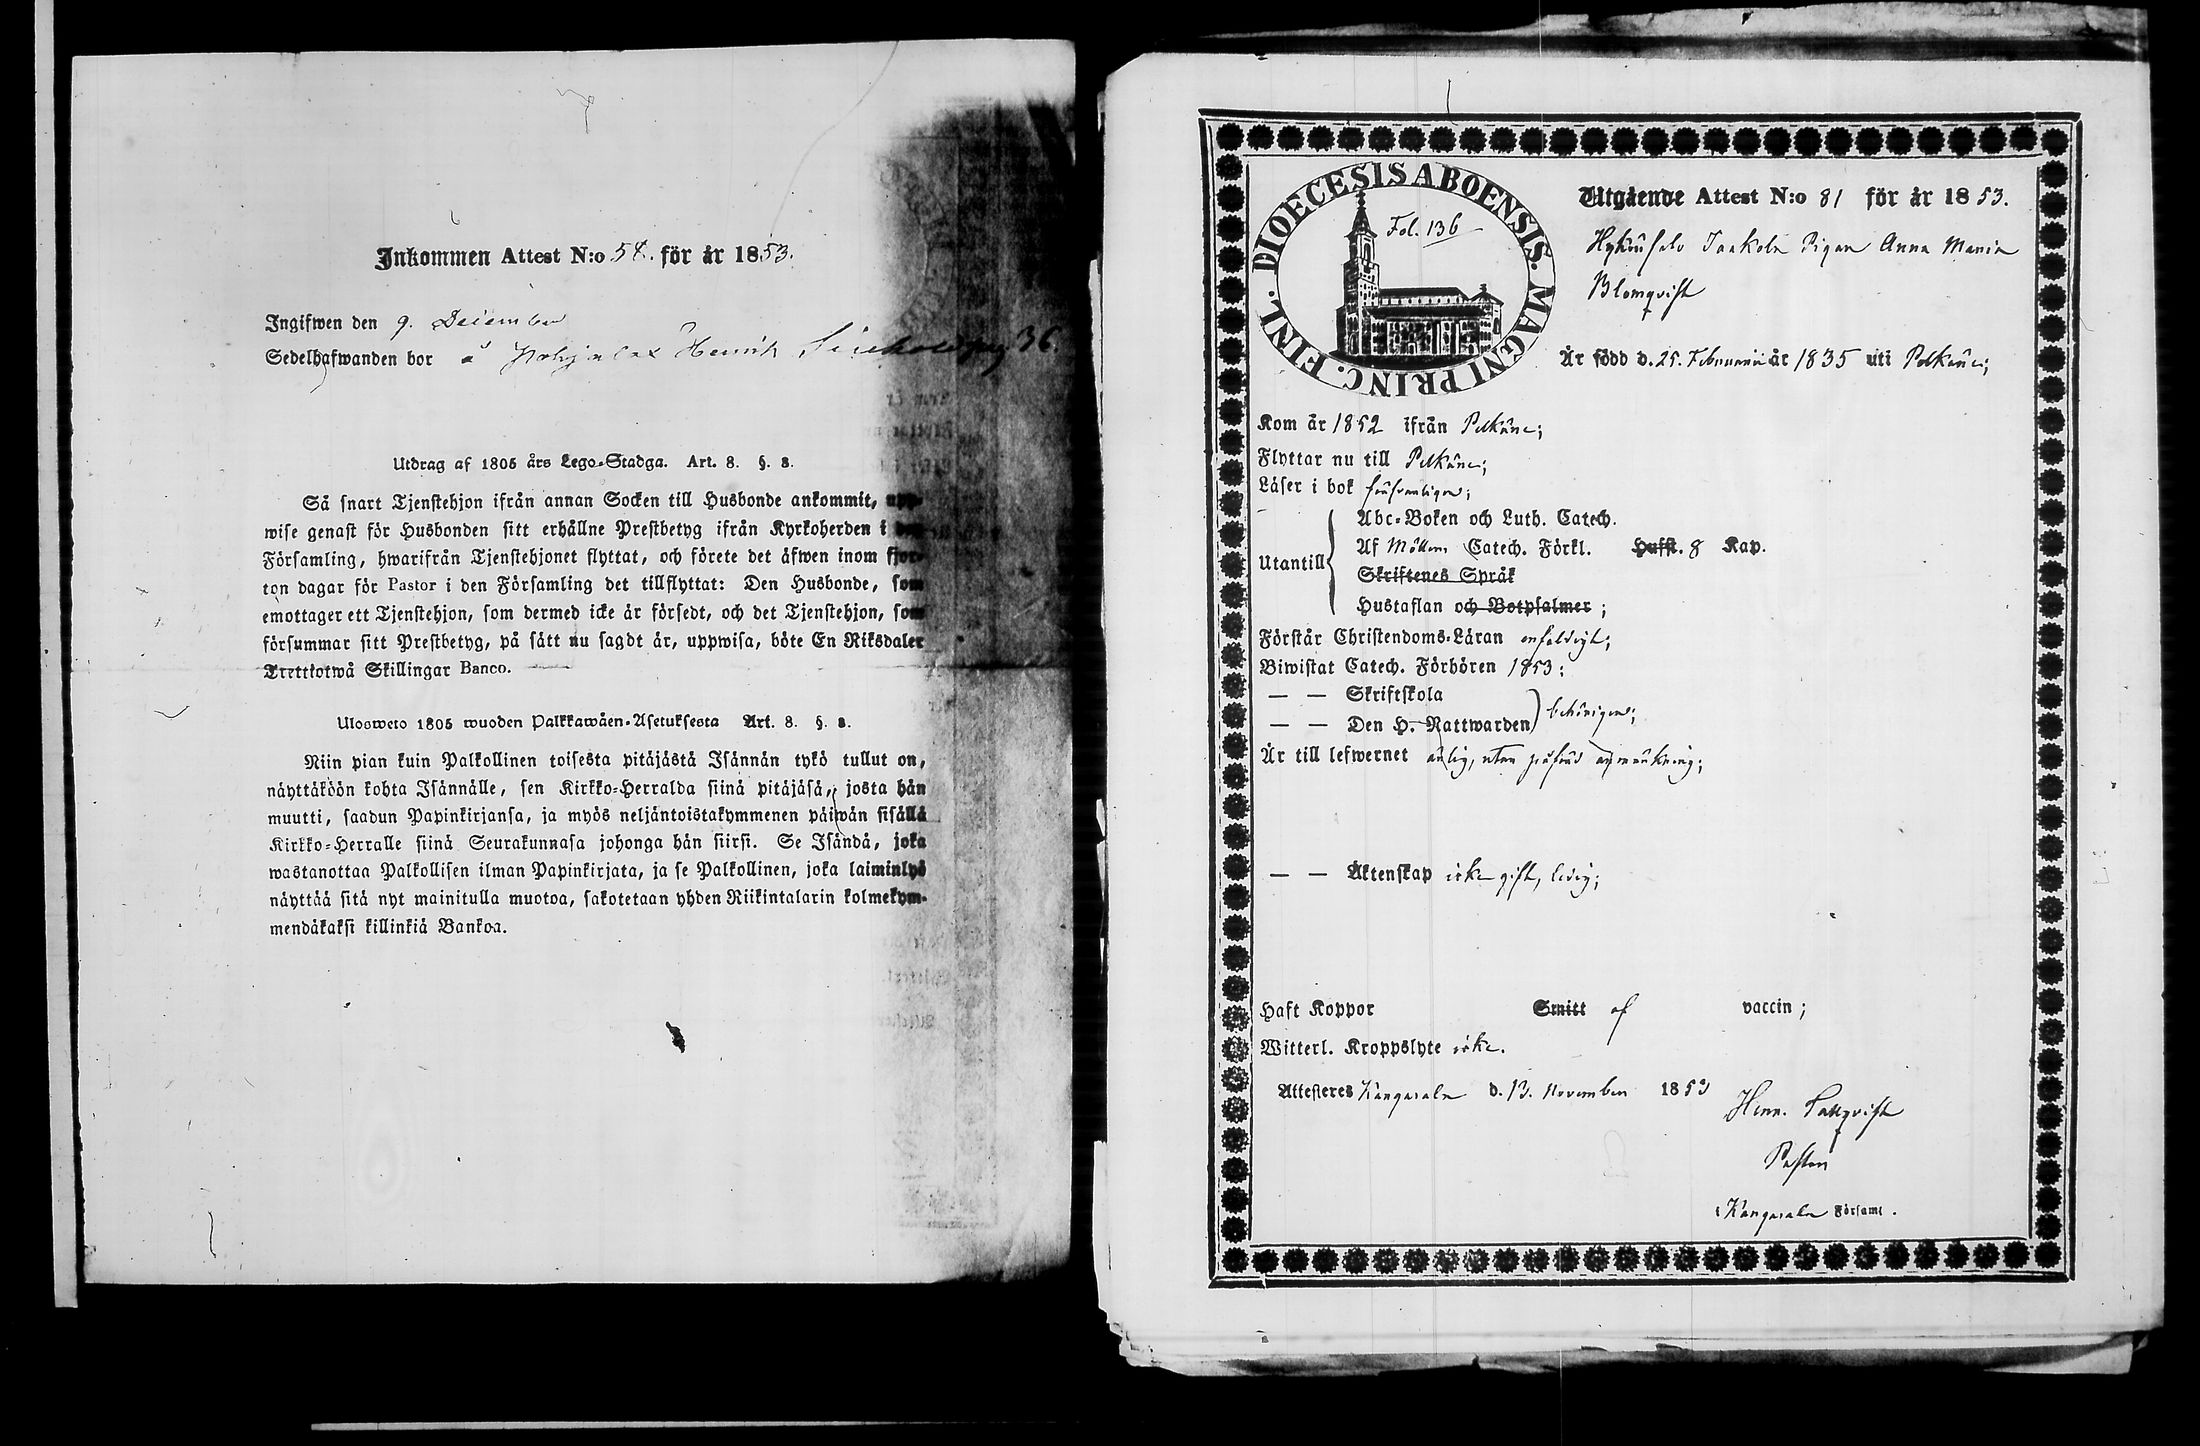 Inkommen Attest N:o 54. för år 1853.
Ingifwen den 9. December
Sedelhafwanden bor å Henrik 36.
Utdrag af 1805 års Lego-Stadga. Art. 8. §. 8.
Så snart Tjenstehjon ifrån annan Socken till Husbonde ankommit, upp-
wise genast för Husbonden sitt erhållne Prestbetyg ifrån Kyrkoherden i den
Församling, hwarifrån Tjenstehjonet flyttat, och förete det äfwen inom fjor-
ton dagar för Pastor i den Församling det tillflyttat: Den Husbonde, som
emottager ett Tjenstehjon, som dermed icke är försedt, och det Tjenstehjon, som
försummar sitt Prestbetyg, på sätt nu sagdt är, uppwisa, böte En Riksdaler
Trettiotwå Skillingar Banco.
Ulosweto 1805 wuoden Palkkawäen-Asetuksesta Art. 8. §. 8.
Niin pian kuin Palkollinen toisesta pitäjästä Isännän tykö tullut on,
näyttäköön kohta Isännälle, sen Kirkko-Herralda siinä pitäjäsä, josta hän
muutti, saadun Papinkirjansa, ja myös neljäntoistakymmenen päiwän sisällä
Kirkko-Herralle siinä Seurakunnasa johonga hän siirsi. Se Isändä, joka
wastanottaa Palkollisen ilman Papinkirjata, ja se Palkollinen, joka laiminlyö
näyttää sitä nyt mainitulla muotoa, sakotetaan yhden Riikintalarin kolmekym-
mendäkaksi killinkiä Bankoa.
DIOECESIS ABOENSIS. MAGNI PRINC. FINL.
Fol. 136
Utgående Attest N:o 81 för år 1853.
Jaakola Pigan Anna Maria
Blomqvist
Är född d. 25. Februarii år 1835 uti Pelkäne;
Kom år 1852 ifrån Pelkäne;
Flyttar nu till Pelkäne;
Läser i bok försvarligen;
Utantill
Abc-Boken och Luth. Catech.
Af Möllers Catech. Förkl. Hufst. 8 Kap.
Skriftenes Språk
Hustaflan och Botpsalmer ;
Förstår Christendoms-Läran enfaldigt;
Biwistat Catech. Förhören 1853:
— — Skriftskola
— — Den H. Nattwarden behörigen;
Är till lefwernet ärlig, utan påförd anmärkning;
— — Äktenskap icke gift, ledig;
Haft Koppor Smitt af vaccin ;
Witterl. Kroppslyte icke.
Attesteres Kangasala d. 13. November 1853
Henr. Pastor
i Kangasala Församl.